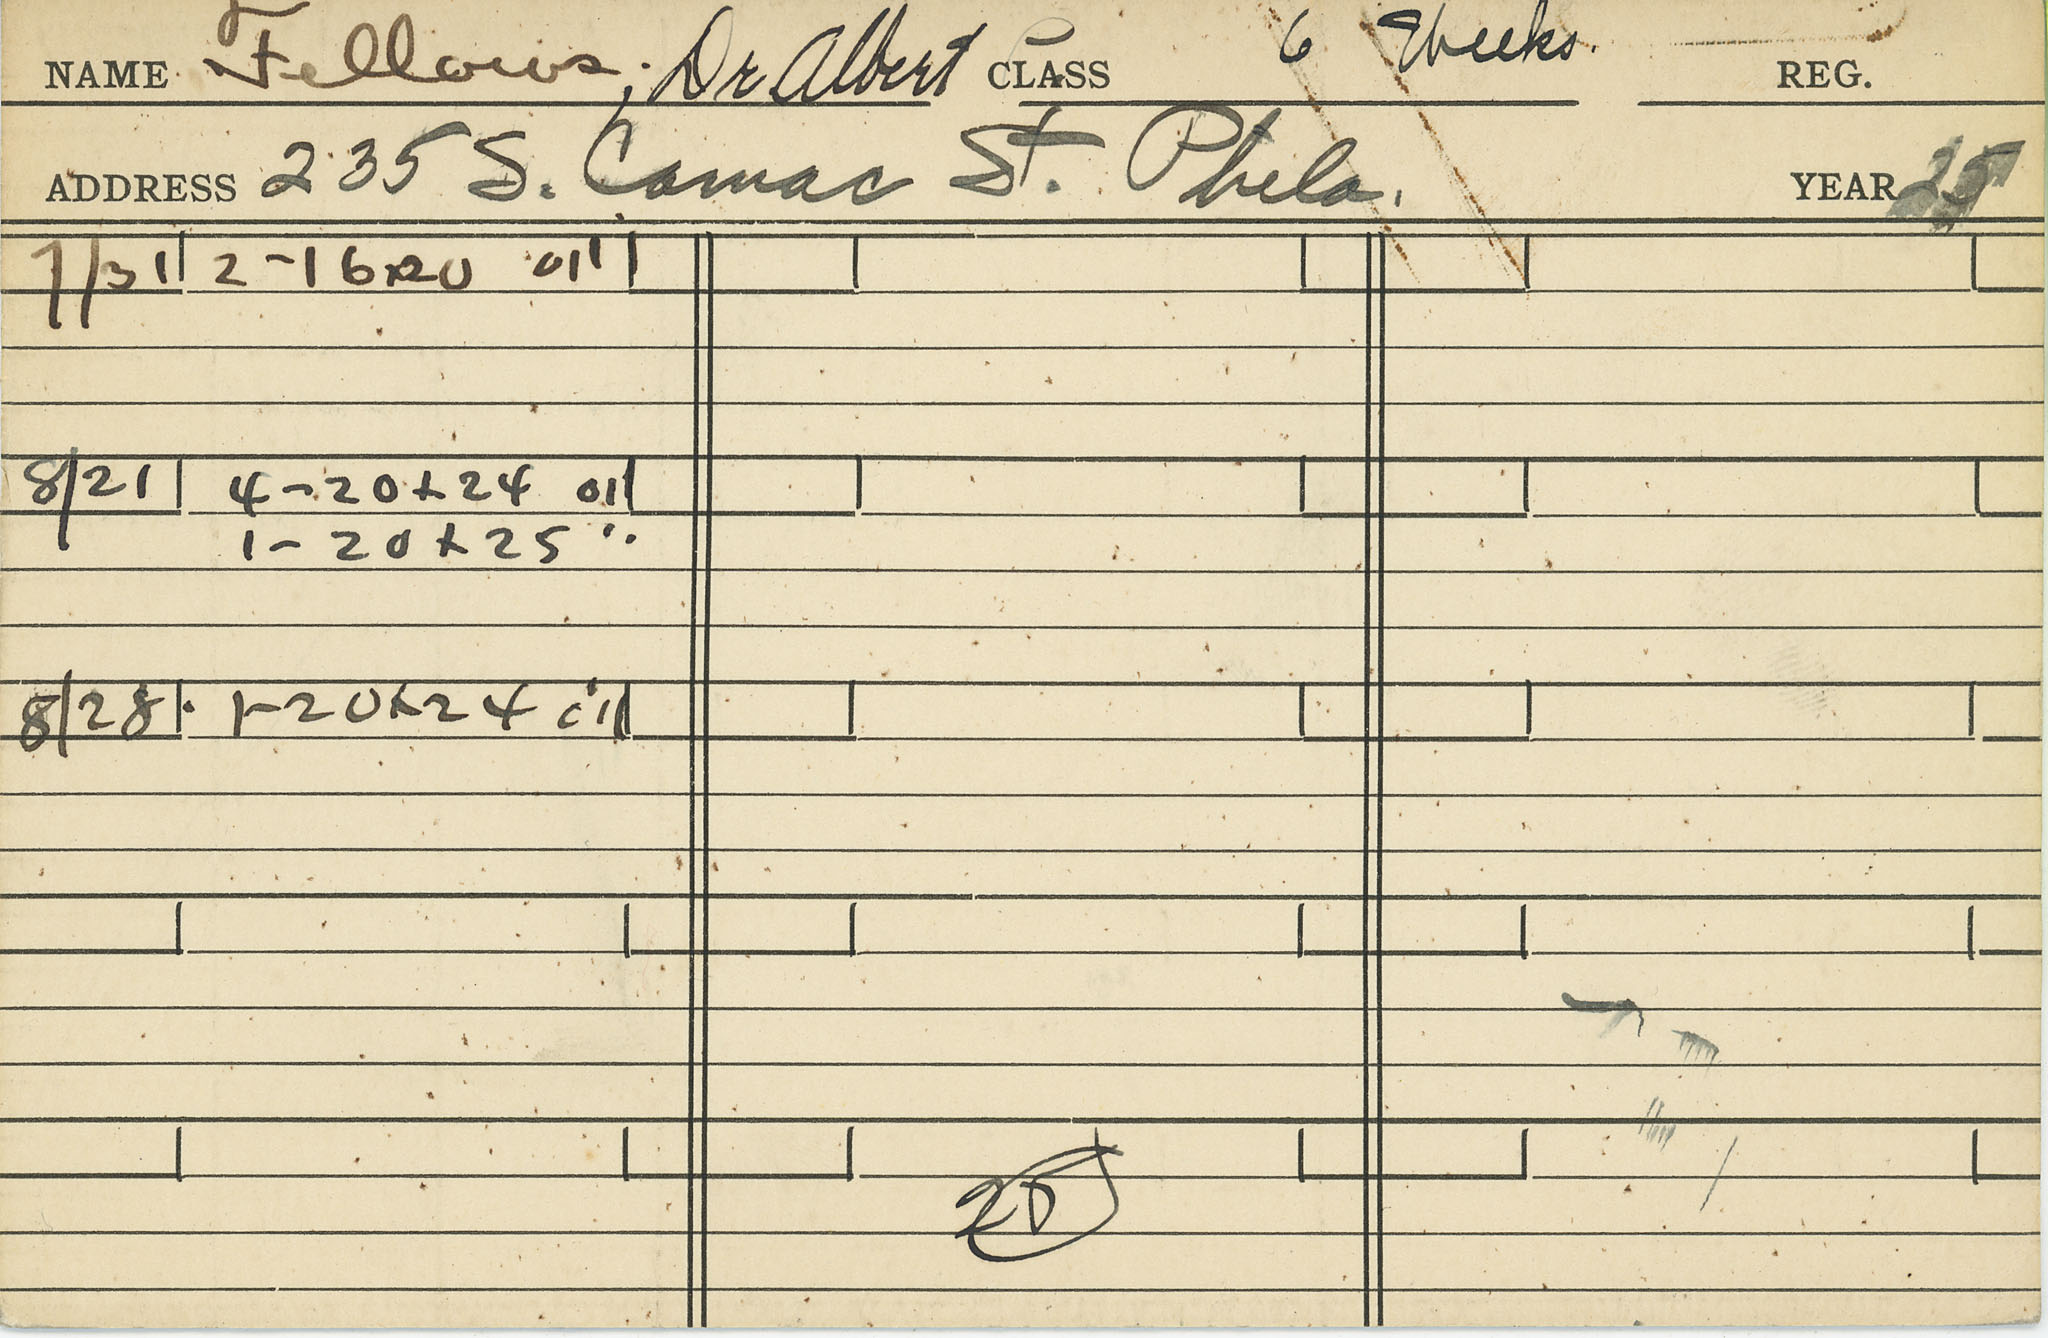 NAME Fellows, Dr Albert CLASS 6 Weeks. REG.
ADDRESS 235 S. Camac St. Phila. YEAR 25
7/31 2-16x20 oil
8/21 4-20x24 oil
1-20x25 "
8/28 1-20x24 oil
20